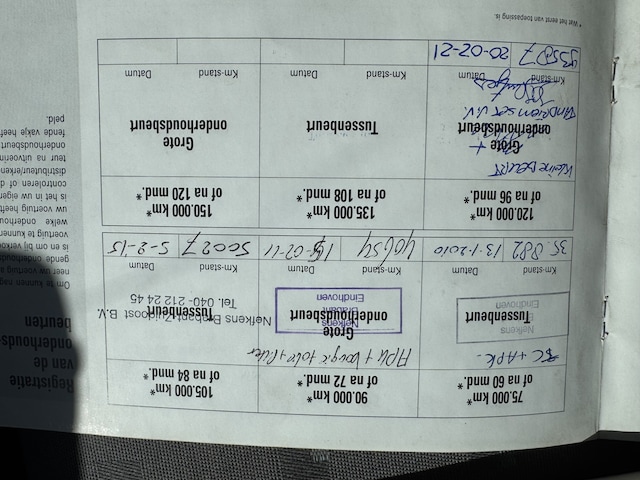 Registratie
van de
onderhouds-
beurten
75.000 km*
of na 60 mnd.*
C + APK -
Tussenbeurt
Nefkens
Eindhoven
Km-stand
Datum
35.882
13-1-2010
90.000 km*
of na 72 mnd.*
APK +
Grote
onderhoudsbeurt
Nefkens
Brabant
Eindhoven
Km-stand
Datum
40654
105.000 km*
of na 84 mnd.*
Tussenbeurt
Nefkens Brabant Zuidoost B.V.
Tel. 040- 212 24 45
Km-stand
Datum
50027
5-2-15
120.000 km*
of na 96 mnd.*
Kleine beurt
Grote +
onderhoudsbeurt
Km-stand
Datum
20-02-21
135.000 km*
of na 108 mnd.*
Tussenbeurt
Km-stand
Datum
150.000 km*
of na 120 mnd.*
Grote
onderhoudsbeurt
Km-stand
Datum
* Wat het eerst van toepassing is.
Om te kunnen nag
neer uw voertuig een
gende onderhouds
is en om bij verko
welke onderhou
voertuig te kunnen
uw voertuig heeft
is het in uw eigen
controleren of d
distributeur/erken
teur na uitvoerin
onderhoudsbeurt
fende vakje heef
peld.